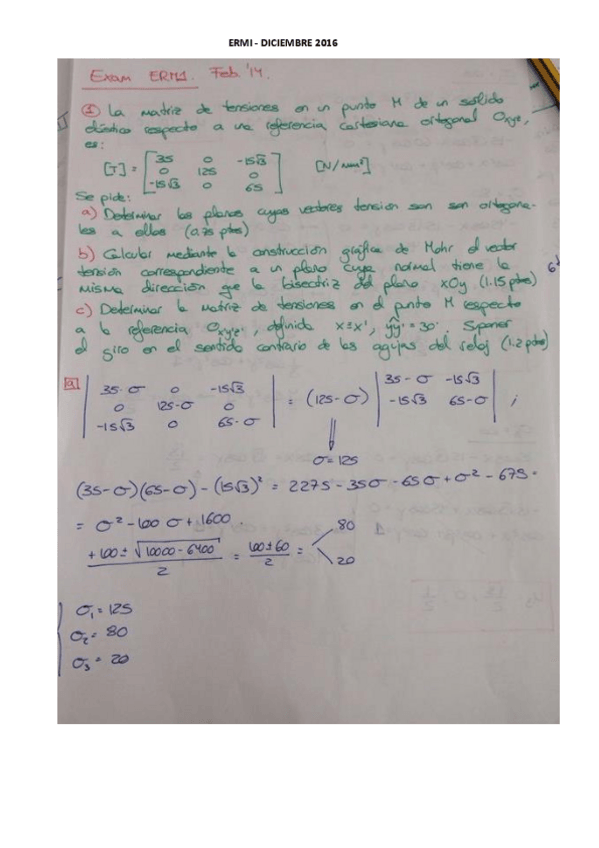 ERMI - DICIEMBRE 2016
Exam ERM1. Feb '14.
① La matriz de tensiones en un punto M de un sólido
elástico respecto a una referencia cartesiana ortogonal Oxyz,
es:
[T] = [35 0 -15√3; 0 125 0; -15√3 0 65] [N/mm²]
Se pide:
a) Determinar los planos cuyos vectores tensión son son ortogona-
les a ellos (0.75 ptos)
b) Calcular mediante la construcción gráfica de Mohr el vector
tensión correspondiente a un plano cuya normal tiene la
misma dirección que la bisectriz del plano xOy (1.15 ptos)
c) Determinar la matriz de tensiones en el punto M respecto
a la referencia Ox'y'z', definida x≡x', yy' = 30°. Suponer
el giro en el sentido contrario de las agujas del reloj (1.2 ptos)
a) |35-σ 0 -15√3; 0 125-σ 0; -15√3 0 65-σ| = (125-σ) |35-σ -15√3; -15√3 65-σ| ;
⇓
σ=125
(35-σ)(65-σ) - (15√3)² = 2275 - 35σ - 65σ + σ² - 675 =
= σ² - 100σ + 1600
+100 ± √(10000 - 6400) / 2 = 100 ± 60 / 2 = 80
20
σ₁ = 125
σ₂ = 80
σ₃ = 20